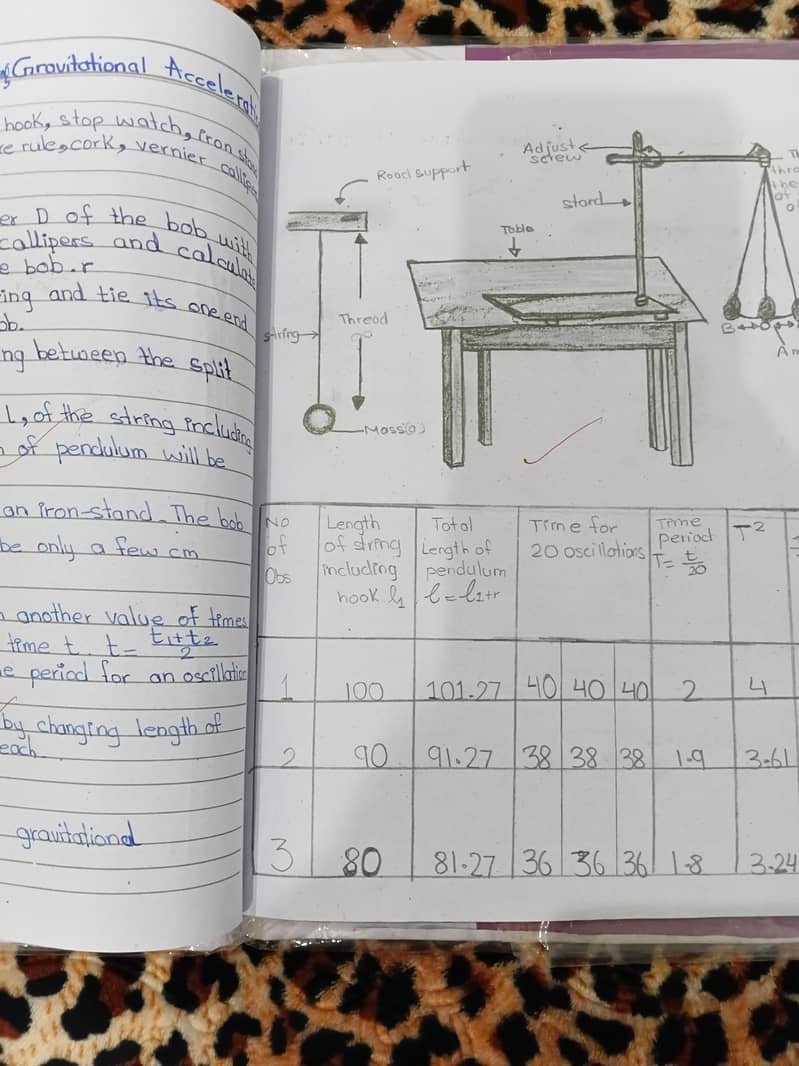 of Gravitational Accelerati
hook, stop watch, iron stan
re rule, cork, vernier callipe
er D of the bob with
callipers and calculate
e bob. r
ing and tie its one end
ob.
ng between the split
L, of the string including
of pendulum will be
an iron-stand. The bob
be only a few cm
another value of times
time t. t = t1+t2/2
e period for an oscillation
by changing length of
each
gravitational
Road support
string
Thread
Mass(o)
Adjust screw
stand
Table
Th
thre
the
of
B O
Am
No of Obs | Length of string including hook l1 | Total Length of pendulum l=l1+r | Time for 20 oscillations | Time period T= t/20 | T²
1 | 100 | 101.27 | 40 | 40 | 40 | 2 | 4
2 | 90 | 91.27 | 38 | 38 | 38 | 1.9 | 3.61
3 | 80 | 81.27 | 36 | 36 | 36 | 1.8 | 3.24